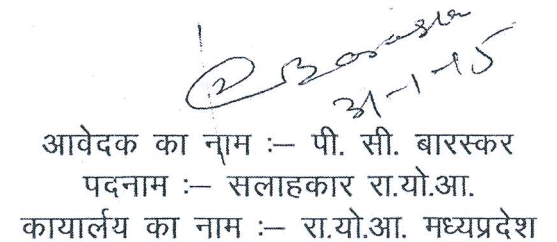 31-1-15
आवेदक का नाम :– पी. सी. बारस्कर
पदनाम :– सलाहकार रा.यो.आ.
कायार्लय का नाम :– रा.यो.आ. मध्यप्रदेश